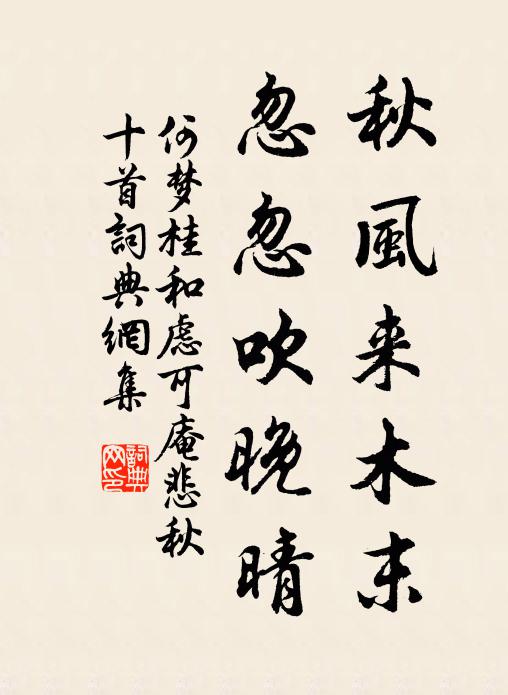 秋風来木末
忽忽吹晩晴
何梦桂和慮可庵悲秋
十首詞典網集
詞典
网印